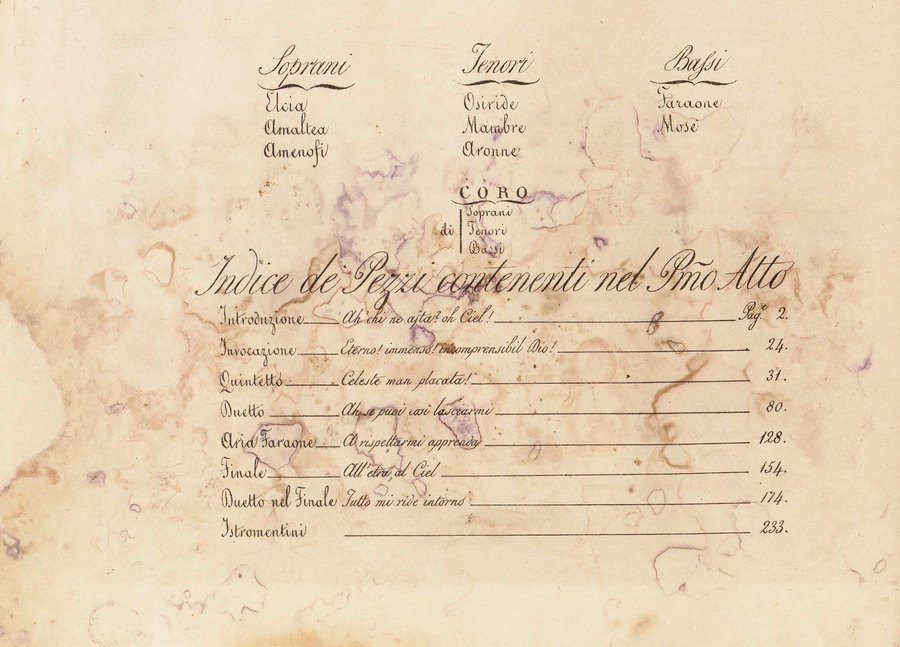 Soprani
Elcia
Amaltea
Amenofi
Tenori
Osiride
Mambre
Aronne
Bassi
Faraone
Mosè
CORO
di
Soprani
Tenori
Bassi
Indice de Pezzi contenenti nel Pm̃o Atto
Introduzione Ah chi ne aita? oh Ciel! Pag.e 2.
Invocazione Eterno! immenso! incomprensibil Dio! 24.
Quintetto Celeste man placata! 31.
Duetto Ah se puoi così lasciarmi 80.
Aria Faraone A rispettarmi apprenda 128.
Finale All'etra, al Ciel 154.
Duetto nel Finale Tutto mi ride intorno 174.
Istromentini 233.